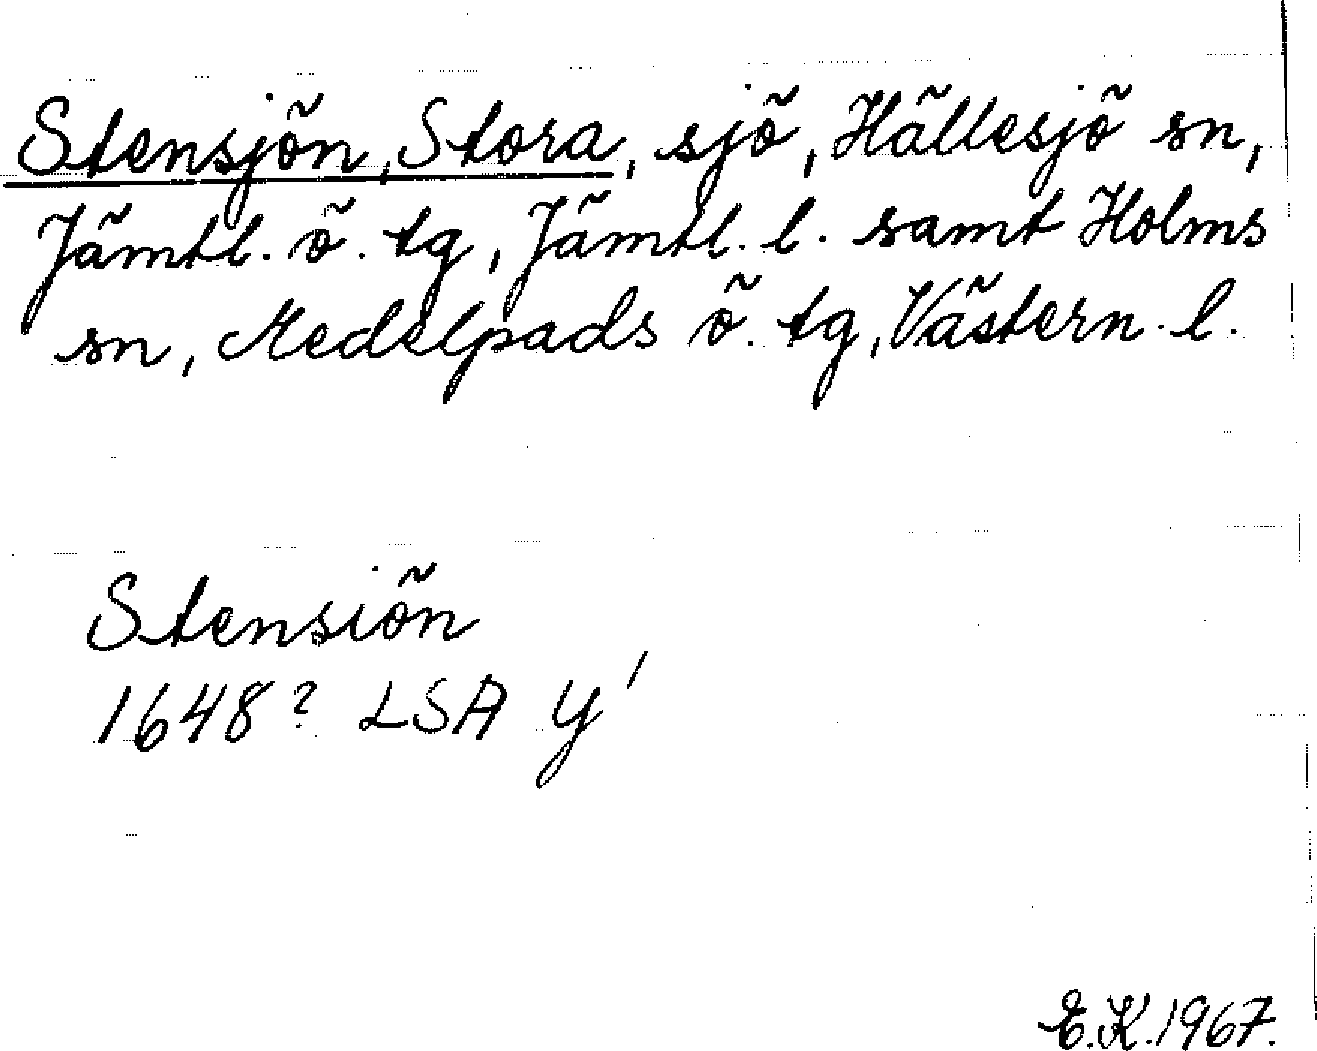 Stensjön, Stora, sjö, Hällesjö sn,
Jämtl. ö. tg, Jämtl. l. samt Holms
sn, Medelpads ö. tg, Västern. l.
Stensiön
1648? LSA Y'
E.K. 1967.